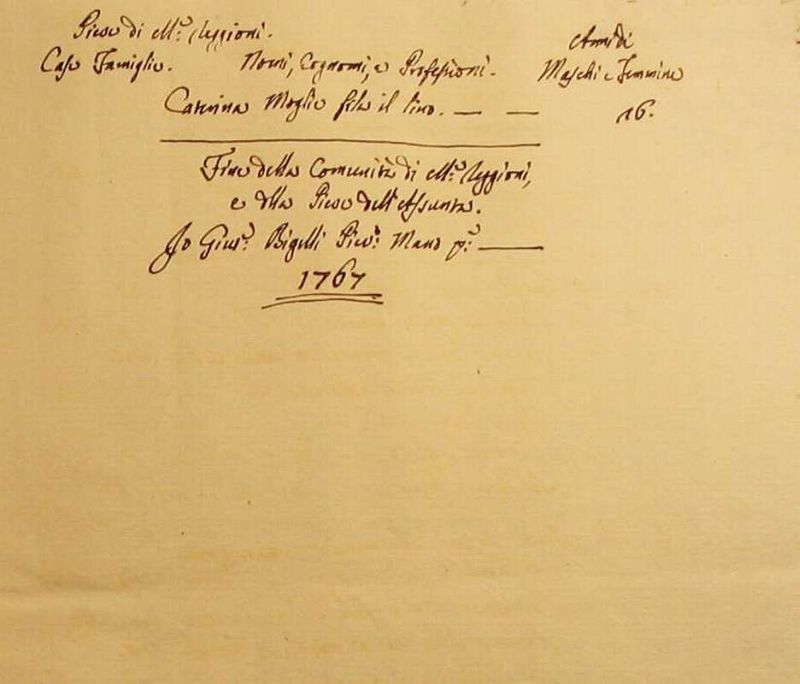 Pieve di M.e Leggioni.
Case Famiglie. Nomi, Cognomi, e Professioni. Anni di Maschi e Femmine
Caterina Moglie fila il lino. — — 16.
Fine della Comunità di M.e Leggioni,
e della Pieve dell'Assunta.
Io Gius.e Bigelli Piev.o Mano p.a —
1767